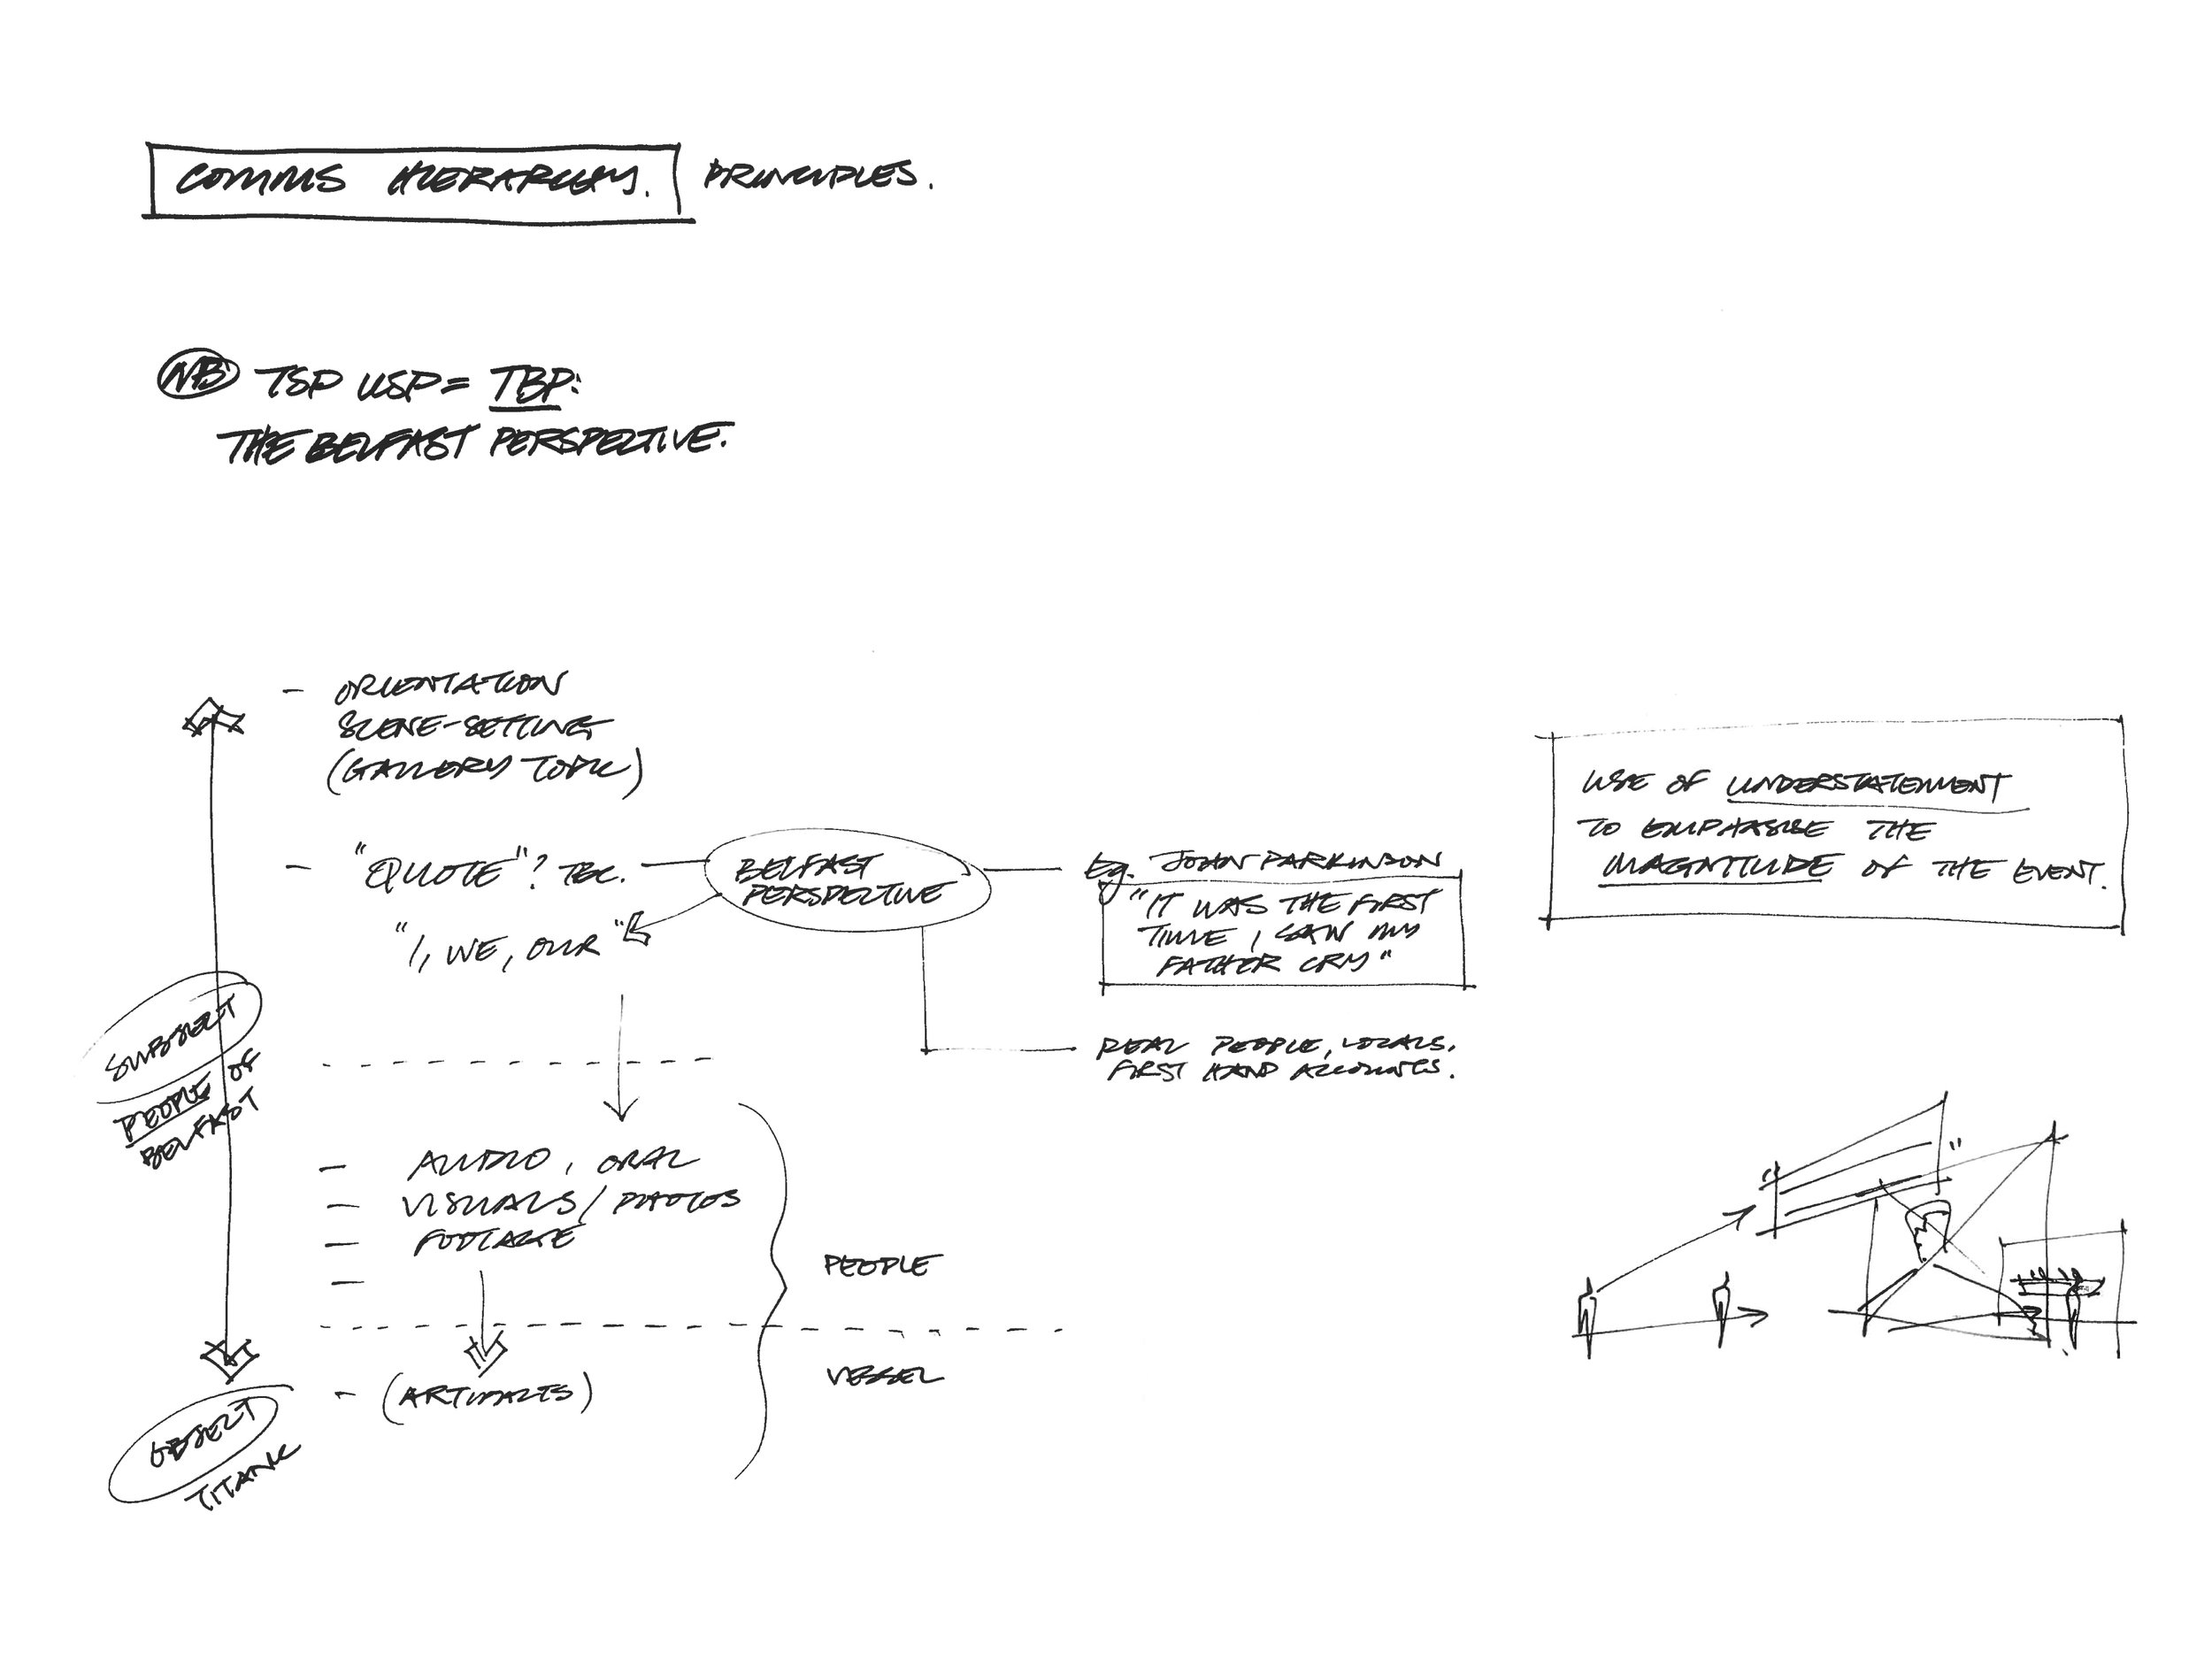 COMMS HIERARCHY. PRINCIPLES.
NB TSP USP = TBP:
THE BELFAST PERSPECTIVE.
- ORIENTATION
SCENE-SETTING
(GALLERY TOPIC)
- "QUOTE"? TBC.
"I, WE, OUR"
BELFAST
PERSPECTIVE
Eg. JOHN PARKINSON
"IT WAS THE FIRST
TIME I SAW MY
FATHER CRY"
REAL PEOPLE, LOCALS.
FIRST HAND ACCOUNTS.
USE OF UNDERSTATEMENT
TO EMPHASISE THE
MAGNITUDE OF THE EVENT.
SUBJECT
PEOPLE OF
BELFAST
- AUDIO, ORAL
- VISUALS / PHOTOS
- FOOTAGE
-
PEOPLE
VESSEL
- (ARTIFACTS)
OBJECT
TITANIC